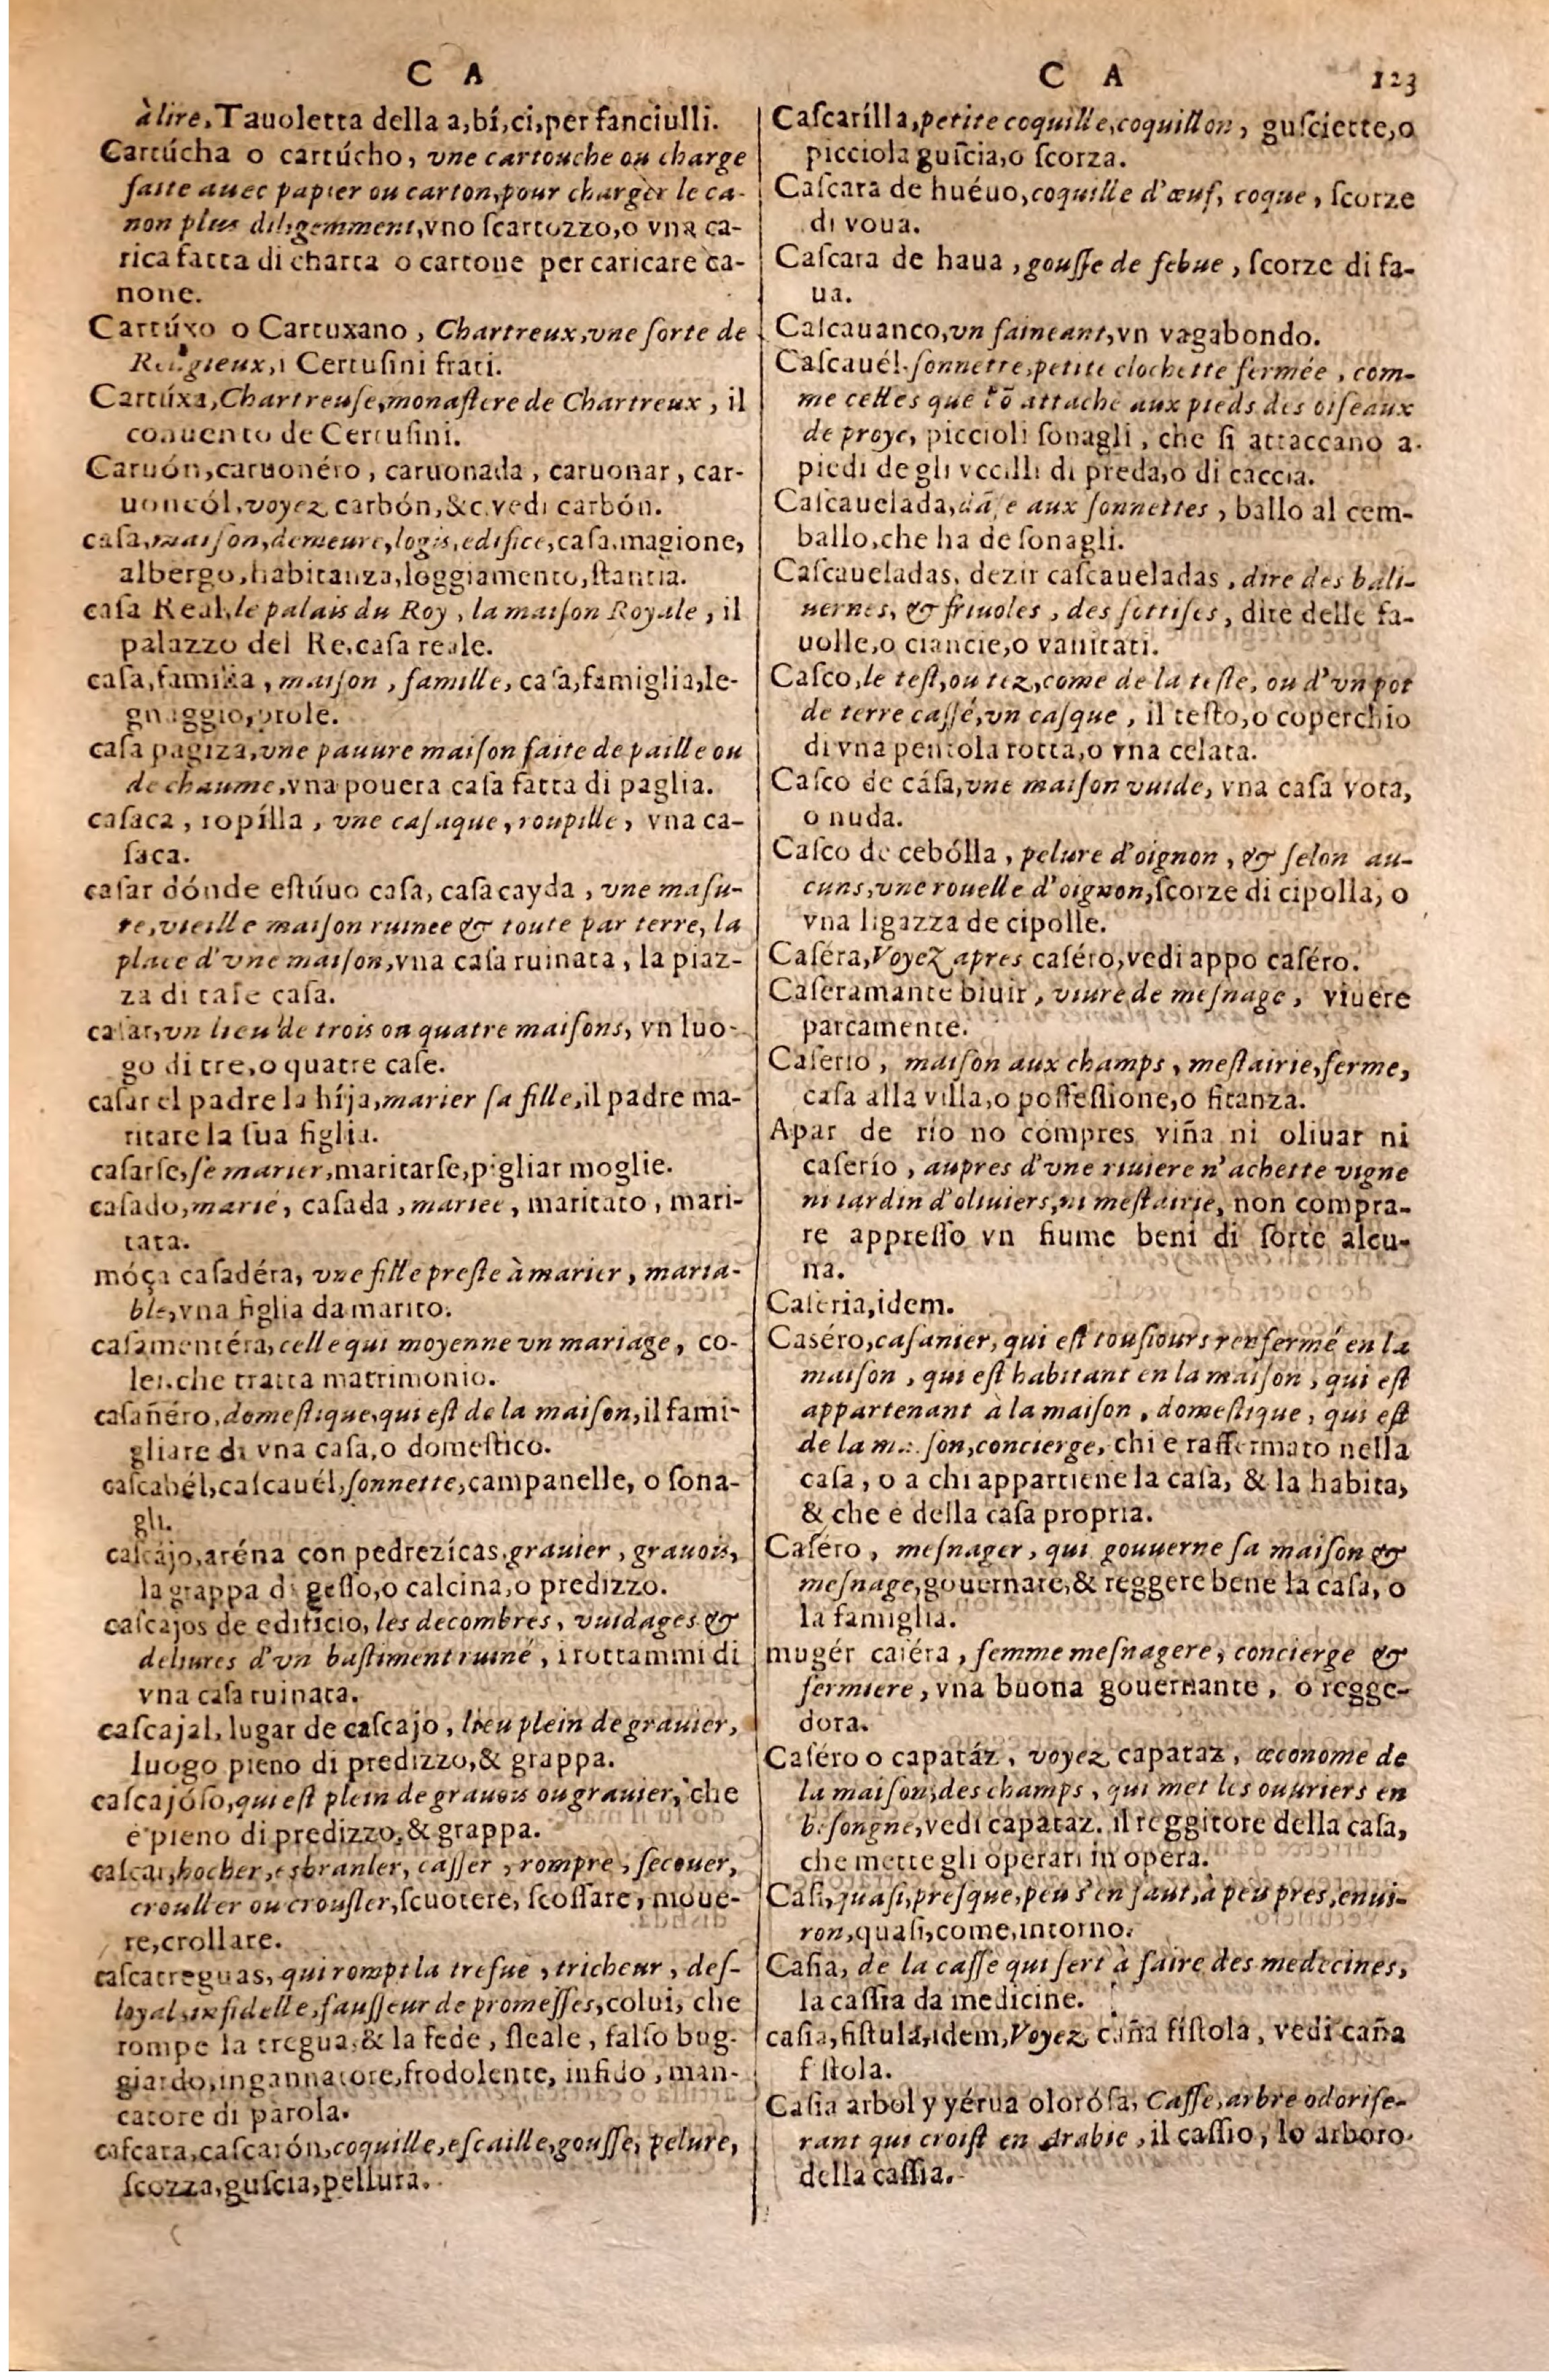 C A
àlire, Tauoletta della a,bí,ci,per fanciulli.
Cartúcha o cartúcho, vne cartouche ou charge
faite auec papier ou carton,pour charger le ca-
non plus diligemment,vno ſcartozzo,o vna ca-
rica fatta di charta o cartone per caricare ca-
none.
Cartúxo o Cartuxano, Chartreux,vne ſorte de
Religieux,i Certuſini frati.
Cartúxa,Chartreuſe,monaſtere de Chartreux, il
conuento de Certuſini.
Caruón,caruonéro, caruonada, caruonar, car-
uoncól,voyez carbón,&c.vedi carbón.
caſa,maiſon,demeure,logis,edifice,caſa,magione,
albergo,habitanza,loggiamento,ſtantia.
caſa Real,le palais du Roy, la maiſon Royale, il
palazzo del Re,caſa reale.
caſa,familia, maiſon, famille, caſa,famiglia,le-
gnaggio,prole.
caſa pagiza,vne pauure maiſon faite de paille ou
de chaume,vna pouera caſa fatta di paglia.
caſaca, ropílla, vne caſaque, roupille, vna ca-
ſaca.
caſar dónde eſtúuo caſa, caſa cayda, vne maſu-
re,vieille maiſon ruinee & toute par terre, la
place d'vne maiſon,vna caſa ruinata, la piaz-
za di tale caſa.
caſar,vn lieu de trois ou quatre maiſons, vn luo-
go di tre,o quatre caſe.
caſar el padre la híja,marier ſa fille,il padre ma-
ritare la ſua figlia.
caſarſe,ſe marier,maritarſe,pigliar moglie.
caſado,marié, caſada, mariee, maritato, mari-
tata.
móça caſadéra, vne fille preſte à marier, maria-
ble,vna figlia da marito.
caſamentéra,celle qui moyenne vn mariage, co-
lei,che tratta matrimonio.
caſañéro,domeſtique,qui eſt de la maiſon,il fami-
gliare di vna caſa,o domeſtico.
caſcabél,caſcauél,ſonnette,campanelle, o ſona-
gli.
caſcájo,aréna con pedrezícas,grauier, grauois,
la grappa di geſſo,o calcina,o predizzo.
caſcajos de edificio, les decombres, vuidages &
deliures d'vn baſtiment ruiné, i rottammi di
vna caſa ruinata.
caſcajal, lugar de caſcajo, lieu plein de grauier,
luogo pieno di predizzo,& grappa.
caſcajóſo,qui eſt plein de grauois ou grauier, che
e pieno di predizzo,& grappa.
caſcar,hocher,esbranler, caſſer, rompre, ſecouer,
crouller ou crouſler,ſcuotere, ſcoſſare, moue-
re,crollare.
caſcatreguas, qui rompt la trefue, tricheur, deſ-
loyal,infidelle,fauſſeur de promeſſes,colui, che
rompe la tregua,& la fede, ſleale, falſo bug-
giardo,ingannatore,frodolente, infido, man-
catore di parola.
caſcara,caſcarón,coquille,eſcaille,gouſſe, pelure,
ſcozza,guſcia,pellura.
C A 123
Caſcarílla,petite coquille,coquillon, guſciette,o
picciola guſcia,o ſcorza.
Caſcara de huéuo,coquille d'œuf, coque, ſcorze
di voua.
Caſcara de haua, gouſſe de febue, ſcorze di fa-
ua.
Caſcauanco,vn faineant,vn vagabondo.
Caſcauél,ſonnette,petite clochette fermée, com-
me celles que l'õ attache aux pieds des oiſeaux
de proye, piccioli ſonagli, che ſi attaccano a
piedi de gli vccelli di preda,o di caccia.
Caſcauelada,dãſe aux ſonnettes, ballo al cem-
ballo,che ha de ſonagli.
Caſcaueladas, dezir caſcaueladas, dire des bali-
uernes, & friuoles, des ſottiſes, dire delle fa-
uolle,o ciancie,o vanitati.
Caſco,le teſt,ou tez,come de la teſte, ou d'vn pot
de terre caſſé,vn caſque, il teſto,o coperchio
di vna pentola rotta,o vna celata.
Caſco de cáſa,vne maiſon vuide, vna caſa vota,
o nuda.
Caſco de cebólla, pelure d'oignon, & ſelon au-
cuns,vne rouelle d'oignon,ſcorze di cipolla, o
vna ligazza de cipolle.
Caſéra,Voyez apres caſéro,vedi appo caſéro.
Caſeramante biuir, viure de meſnage, viuere
parcamente.
Caſerio, maiſon aux champs, meſtairie,ferme,
caſa alla villa,o poſſeſſione,o fitanza.
Apar de río no compres viña ni oliuar ni
caſerío, aupres d'vne riuiere n'achette vigne
ni iardin d'oliuiers,ni meſtairie, non compra-
re appreſſo vn fiume beni di ſorte alcu-
na.
Caſeria,idem.
Caséro,caſanier, qui eſt touſiours renfermé en la
maiſon, qui eſt habitant en la maiſon, qui eſt
appartenant à la maiſon, domeſtique, qui eſt
de la maiſon,concierge, chi e raffermato nella
caſa, o a chi appartiene la caſa, & la habita,
& che e della caſa propria.
Caſéro, meſnager, qui gouuerne ſa maiſon &
meſnage,gouernare,& reggere bene la caſa, o
la famiglia.
mugér caſéra, femme meſnagere, concierge &
fermiere, vna buona gouernante, o regge-
dora.
Caſéro o capatáz, voyez capataz, œconome de
la maiſon,des champs, qui met les ouuriers en
beſongne,vedi capataz. il reggitore della caſa,
che mette gli operari in opera.
Caſi,quaſi,preſque,peu s'en faut,à peu pres,enui-
ron,quaſi,come,intorno.
Caſia, de la caſſe qui ſert à faire des medecines,
la caſſia da medicine.
caſia,fiſtula,idem,Voyez caña fíſtola, vedi caña
fiſtola.
Caſia arbol y yérua oloróſa, Caſſe,arbre odorife-
rant qui croiſt en Arabie, il caſſio, lo arboro
della caſſia.